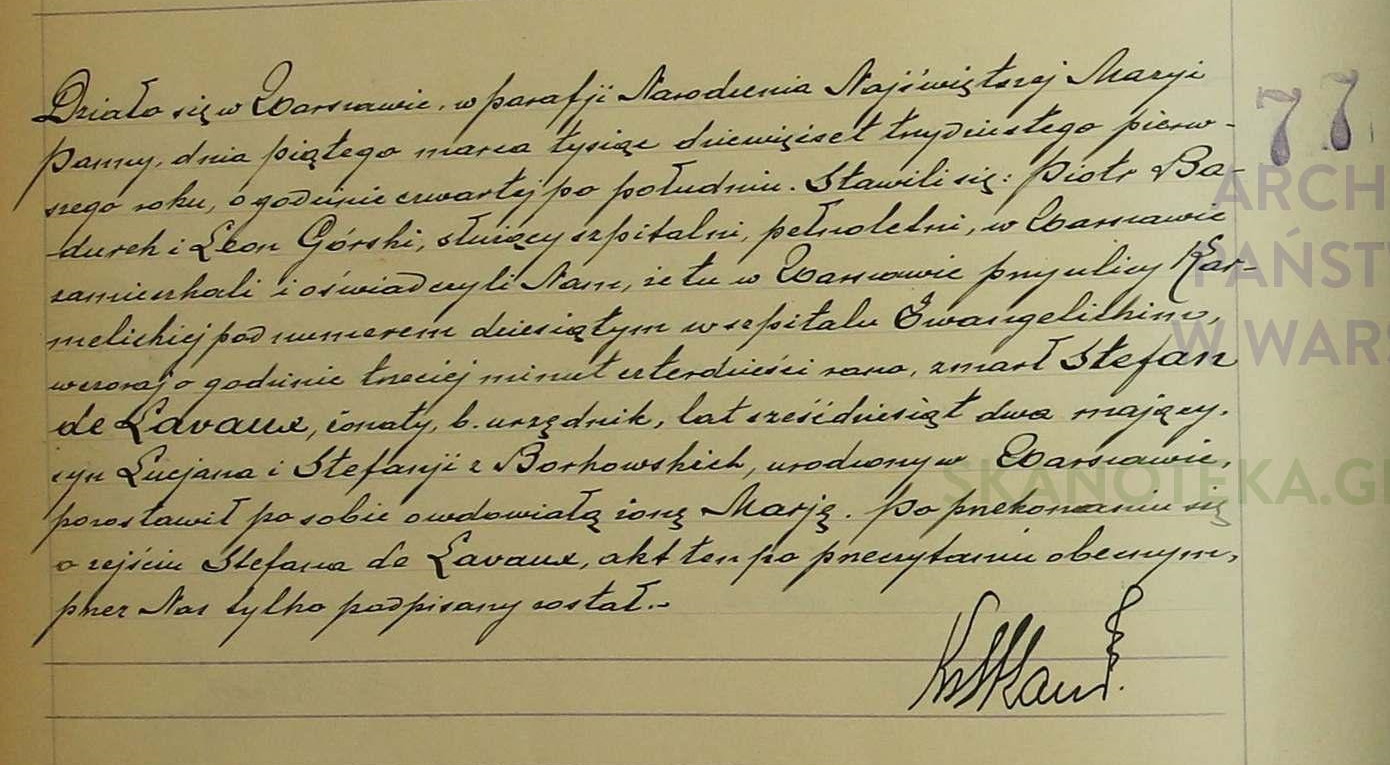 Działo się w Warszawie, w parafji Narodzenia Najświętszej Maryi
Panny, dnia piątego marca tysiąc dziewięćset trzydziestego pierw-
szego roku, o godzinie czwartej po południu. Stawili się: Piotr Ba-
durek i Leon Górski, służący szpitalni, pełnoletni, w Warszawie
zamieszkali i oświadczyli Nam, że tu w Warszawie przy ulicy Kar-
melickiej pod numerem dziesiątym w szpitalu Ewangelickim,
wczoraj o godzinie trzeciej minut czterdzieści rano, zmarł Stefan
de Lavaux, żonaty, b. urzędnik, lat sześćdziesiąt dwa mający,
syn Lucjana i Stefanji z Borkowskich, urodzony w Warszawie,
pozostawił po sobie owdowiałą żonę Marję. Po przekonaniu się
o zejściu Stefana de Lavaux, akt ten po przeczytaniu obecnym,
przez Nas tylko podpisany został.-
77
ARCH
PAŃST
W WAR
SKANOTEKA.G